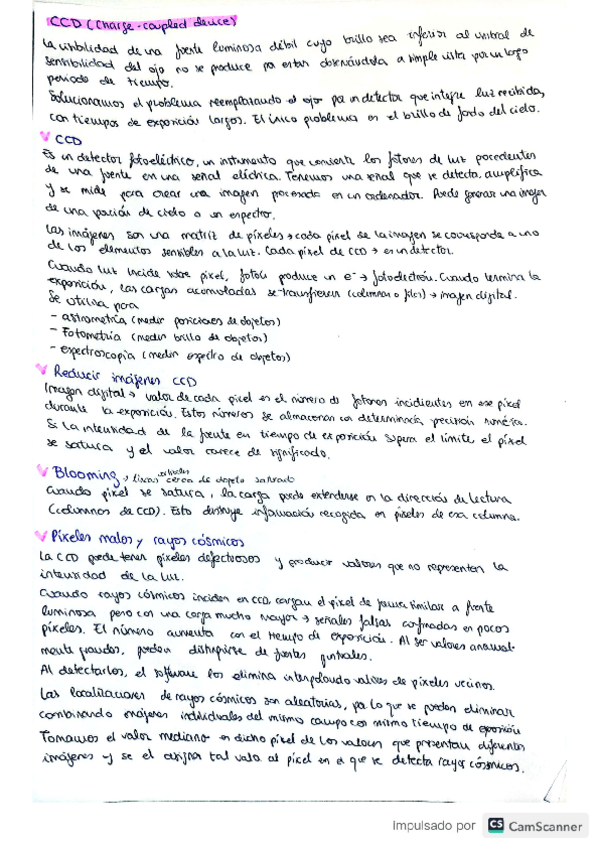 CCD (Charge-coupled device)
La visibilidad de una fuente luminosa débil cuyo brillo sea inferior al umbral de
sensibilidad del ojo no se produce por estar observándola a simple vista por un largo
periodo de tiempo.
Solucionamos el problema reemplazando el ojo por un detector que integre luz recibida,
con tiempos de exposición largos. El único problema es el brillo de fondo del cielo.
CCD
Es un detector fotoeléctrico, un instrumento que convierte los fotones de luz procedentes
de una fuente en una señal eléctrica. Tenemos una señal que se detecta, amplifica
y se mide para crear una imagen procesada en un ordenador. Puede generar una imagen
de una porción de cielo o un espectro.
Las imágenes son una matriz de píxeles → cada pixel de la imagen se corresponde a uno
de los elementos sensibles a la luz. Cada pixel de CCD → es un detector.
Cuando luz incide sobre pixel, fotón produce un e⁻ → fotoelectrón. Cuando termina la
exposición, las cargas acumuladas se transfieren (columnas o filas) → imagen digital.
Se utiliza para
- astrometría (medir posiciones de objetos)
- Fotometría (medir brillo de objetos)
- espectroscopia (medir espectro de objetos)
Reducir imágenes CCD
Imagen digital → valor de cada pixel es el número de fotones incidientes en ese píxel
durante la exposición. Estos números se almacenan con determinada precisión numérica.
Si la intensidad de la fuente en tiempo de exposición supera el límite el píxel
se satura y el valor carece de significado.
Blooming → líneas cerca de objeto saturado
Cuando pixel se satura, la carga puede extenderse en la dirección de lectura
(columnas de CCD). Esto destruye información recogida en píxeles de esa columna.
Píxeles malos y rayos cósmicos
La CCD puede tener píxeles defectuosos y producir valores que no representen la
intensidad de la luz.
Cuando rayos cósmicos inciden en CCD, cargan el pixel de forma similar a fuente
luminosa pero con una carga mucho mayor → señales falsas confinadas en pocos
píxeles. El número aumenta con el tiempo de exposición. Al ser valores anormal-
mente grandes, pueden distinguirse de fuentes puntuales.
Al detectarlos, el software los elimina interpolando valores de píxeles vecinos.
Las localizaciones de rayos cósmicos son aleatorias, por lo que se pueden eliminar
combinando imágenes individuales del mismo campo con mismo tiempo de exposición
Tomamos el valor mediano en dicho píxel de los valores que presentan diferentes
imágenes y se el asigna tal valor al píxel en el que se detecta rayos cósmicos.
Impulsado por CS CamScanner